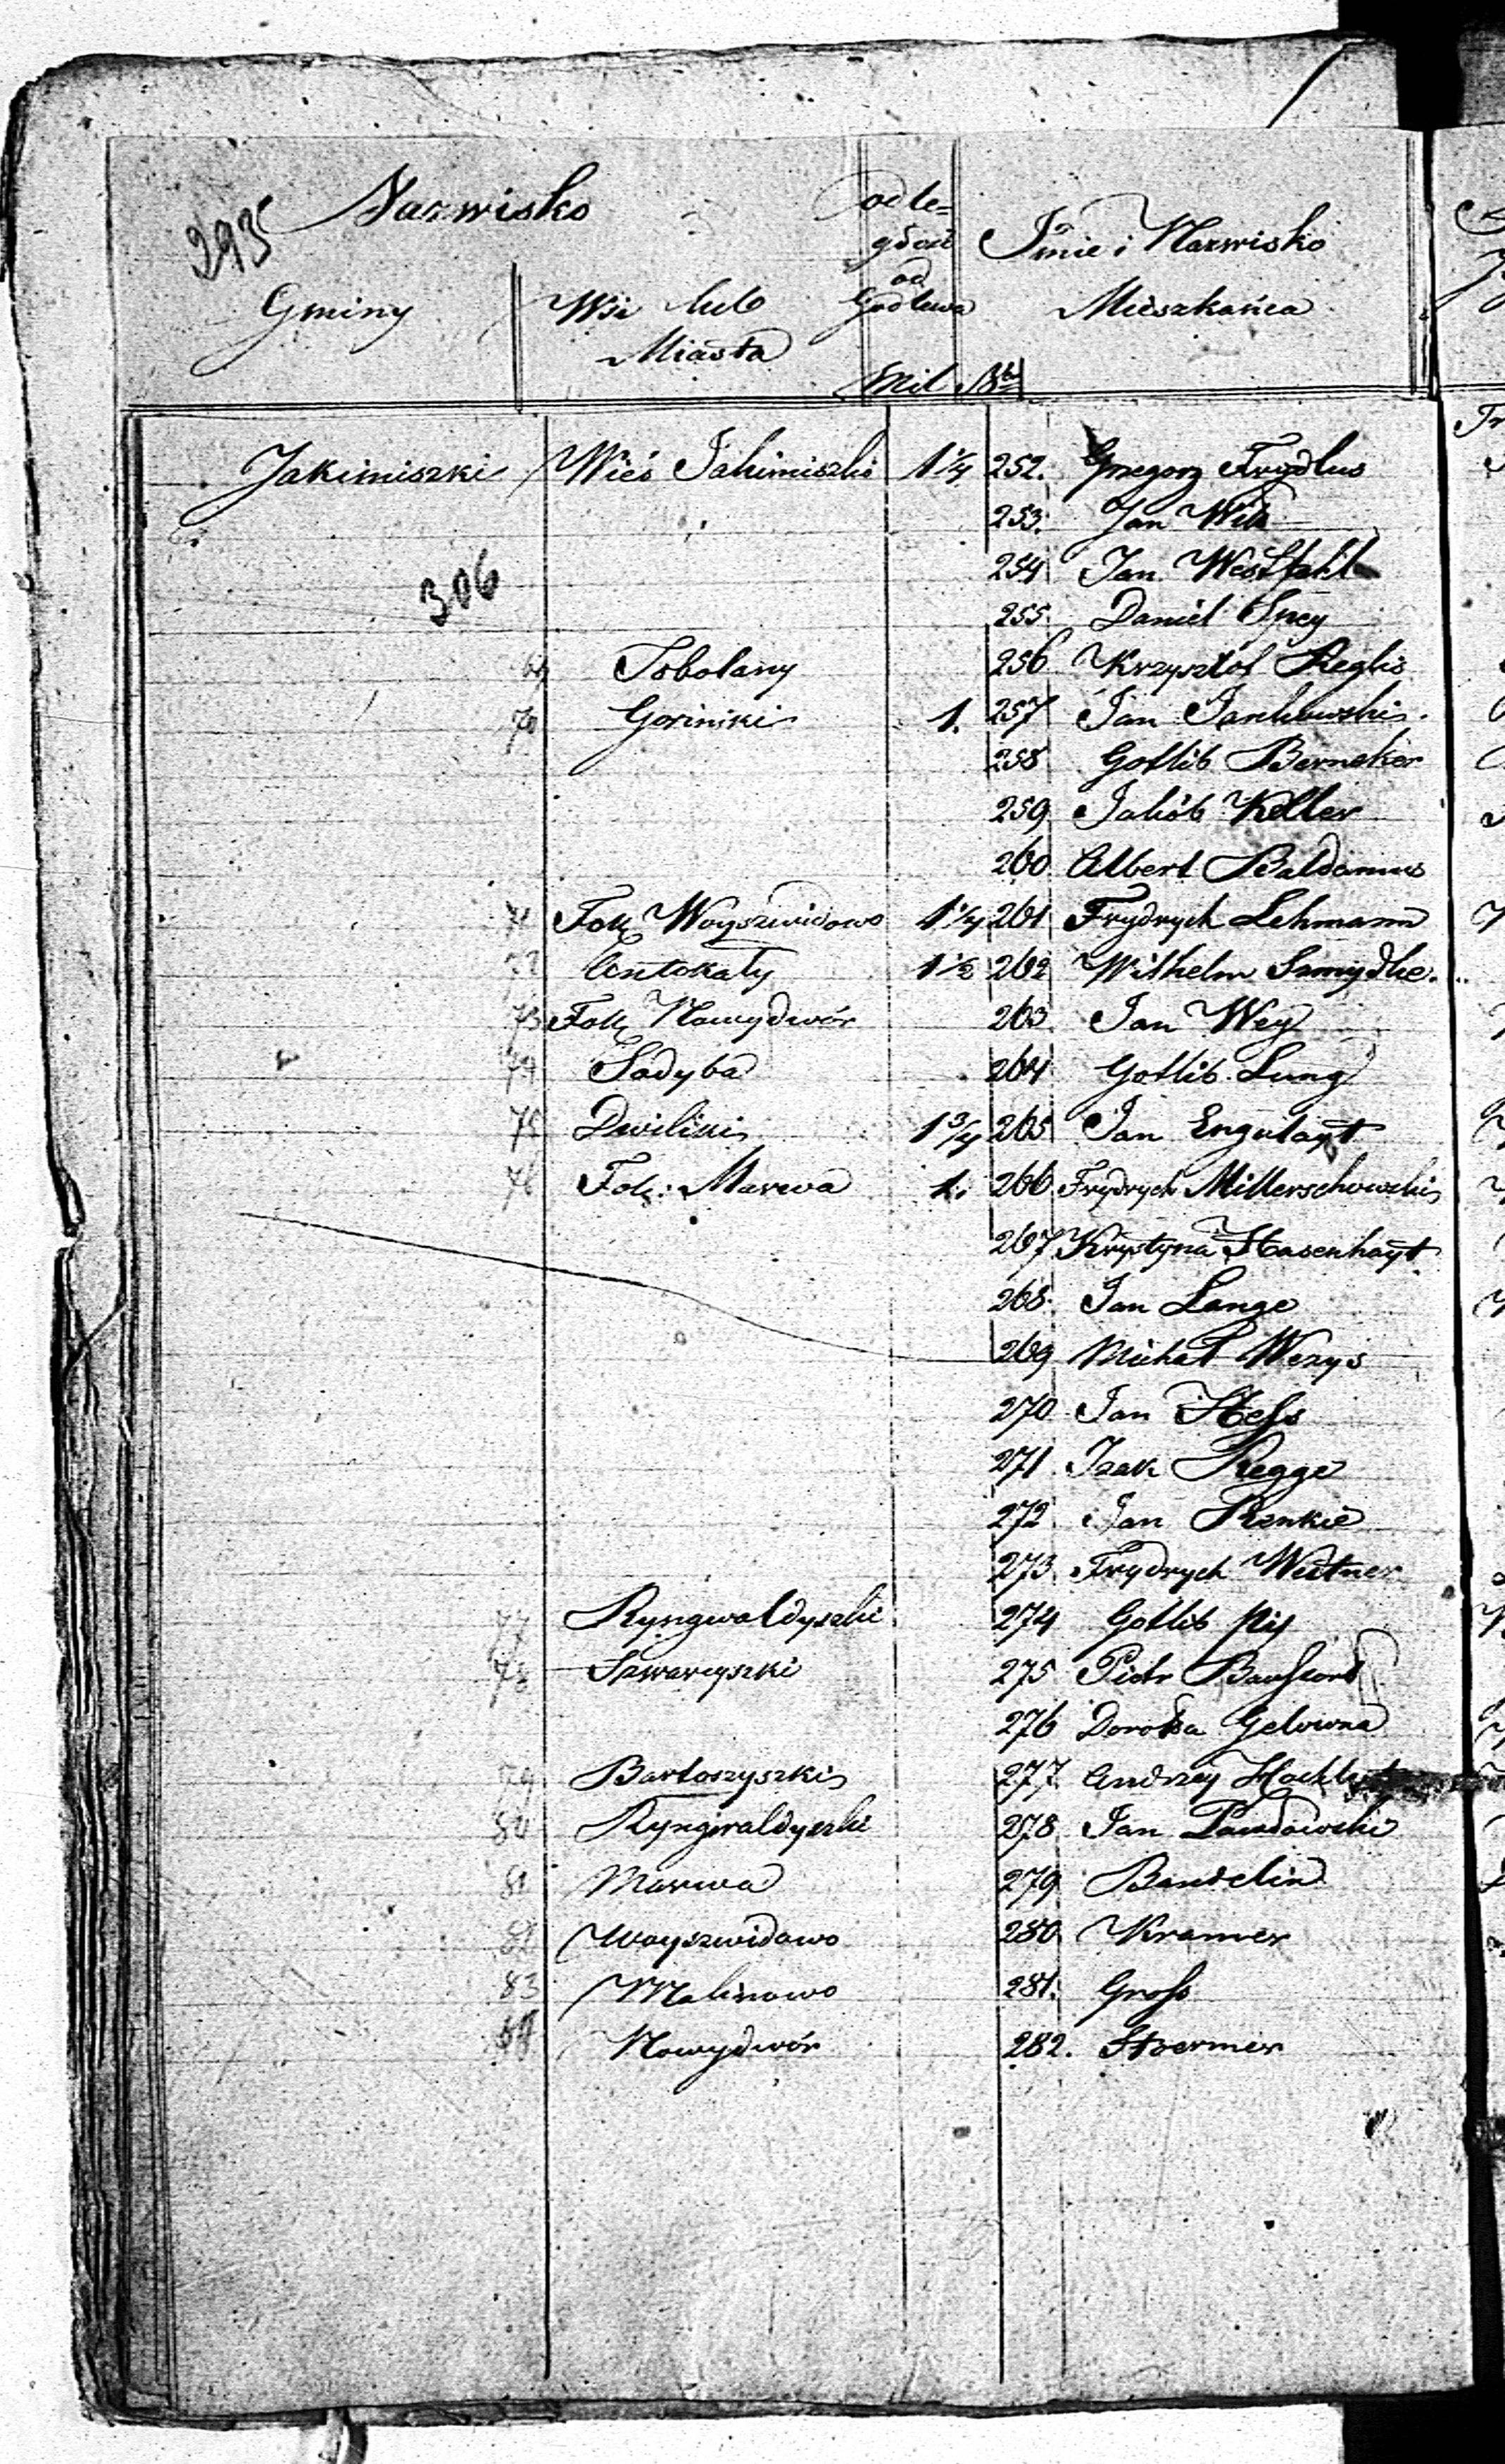 293
Nazwisko
odle=
głość
od
Godlewa
Imie i Nazwisko
Gminy
Wsi lub
Miasta
Mieszkańca
Mil No
Jakimiszki Wieś Jakimiszki 1¼ 252. Grzegorz Frydlus
253. Jan Wilk
306
254 Jan Westfahl
255. Daniel Spey
69 Tobolany 256 Krzysztof Reglis
70 Goriniski 1. 257 Jan Jankowski
258 Gotlib Berneker
259 Jakób Keller
260 Albert Baldamus
71 Folk Woyszwidowo 1¼ 261 Frydrych Lehmann
72 Antokały 1½ 262 Wilhelm Szmydke.
73 Folk Nowydwór 263 Jan Wey
74 Sadyba 264 Gotlib Lung
75 Dwiliki 1¾ 265 Jan Engulayt
76 Folk: Marwa 1. 266 Frydrych Millerschowski
267 Krystyna Hasenhayt
268. Jan Lange
269 Michał Wezys
270 Jan Heſs
271 Izak Regge
272 Jan Renkie
273. Frydrych Westner
77 Ryngwaldyszki 274 Gotlib Piy
78 Szwarcyszki 275 Piotr
276 Dorota Gelowna
79 Bartoszyszki 277. Andrzej
80 Ryngwaldyszki 278 Jan Pawdowski
81 Marwa 279 Bandelin
82 Woyszwidowo 280 Kramer
83 Malinowo 281. Groſs
84 Nowydwór 282. Stoermer